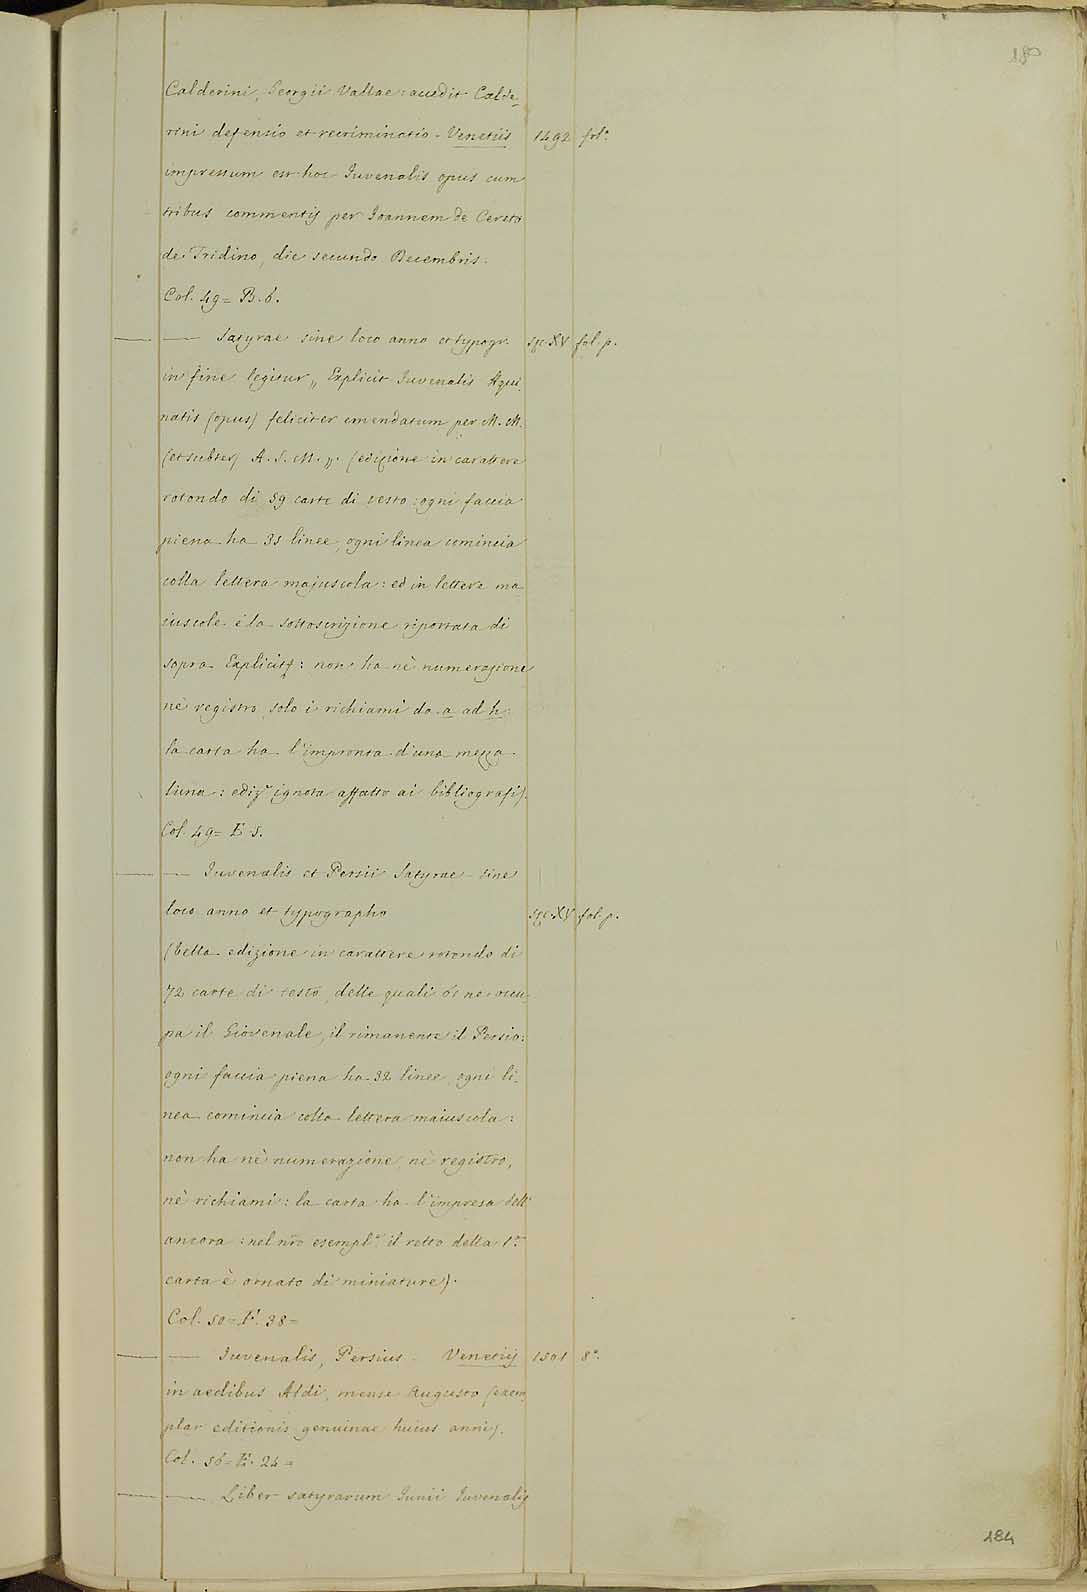 180
Calderini, Georgii Vallae: accedit Calde_
rini defensio et recriminatio - Venetiis 1492 fol.º
impressum est hoc Juvenalis opus cum
tribus commentis per Joannem de Cereto
de Tridino, die secundo Decembris.
Col. 49 = B. 6.
— — Satyrae sine loco anno et typogr. sec. XV fol. p.
in fine legitur „ Explicit Juvenalis Aqui_
natis (opus) feliciter emendatum per M. M.
(et subter) A. S. M. „. (edizione in carattere
rotondo di 59 carte di testo: ogni faccia
piena ha 33 linee, ogni linea comincia
colla lettera majuscola: ed in lettere ma_
iuscole è la sottoscrizione riportata di
sopra Explicit: non ha nè numerazione
nè registro, solo i richiami da a ad h:
la carta ha l'impronta d'una mezza
luna: ediz.e ignota affatto ai bibliografi).
Col. 49 = E 5.
— — Juvenalis et Persii Satyrae - sine
loco anno et typographo sec. XV fol. p.
(bella edizione in carattere rotondo di
72 carte di testo, delle quali 61 ne occu_
pa il Giovenale, il rimanente il Persio:
ogni faccia piena ha 32 linee, ogni li_
nea comincia colla lettera maiuscola:
non ha nè numerazione, nè registro,
nè richiami: la carta ha l'impresa dell'
ancora: nel nro esempl.e il retto della 1.a
carta è ornato di miniature).
Col. 50 = F. 38 =
— — Juvenalis, Persius - Venetiis 1501 8º.
in aedibus Aldi, mense Augusto (exem_
plar editionis genuinae huius anni).
Col. 56 = E. 24 =
— — Liber satyrarum Junii Juvenalis
184